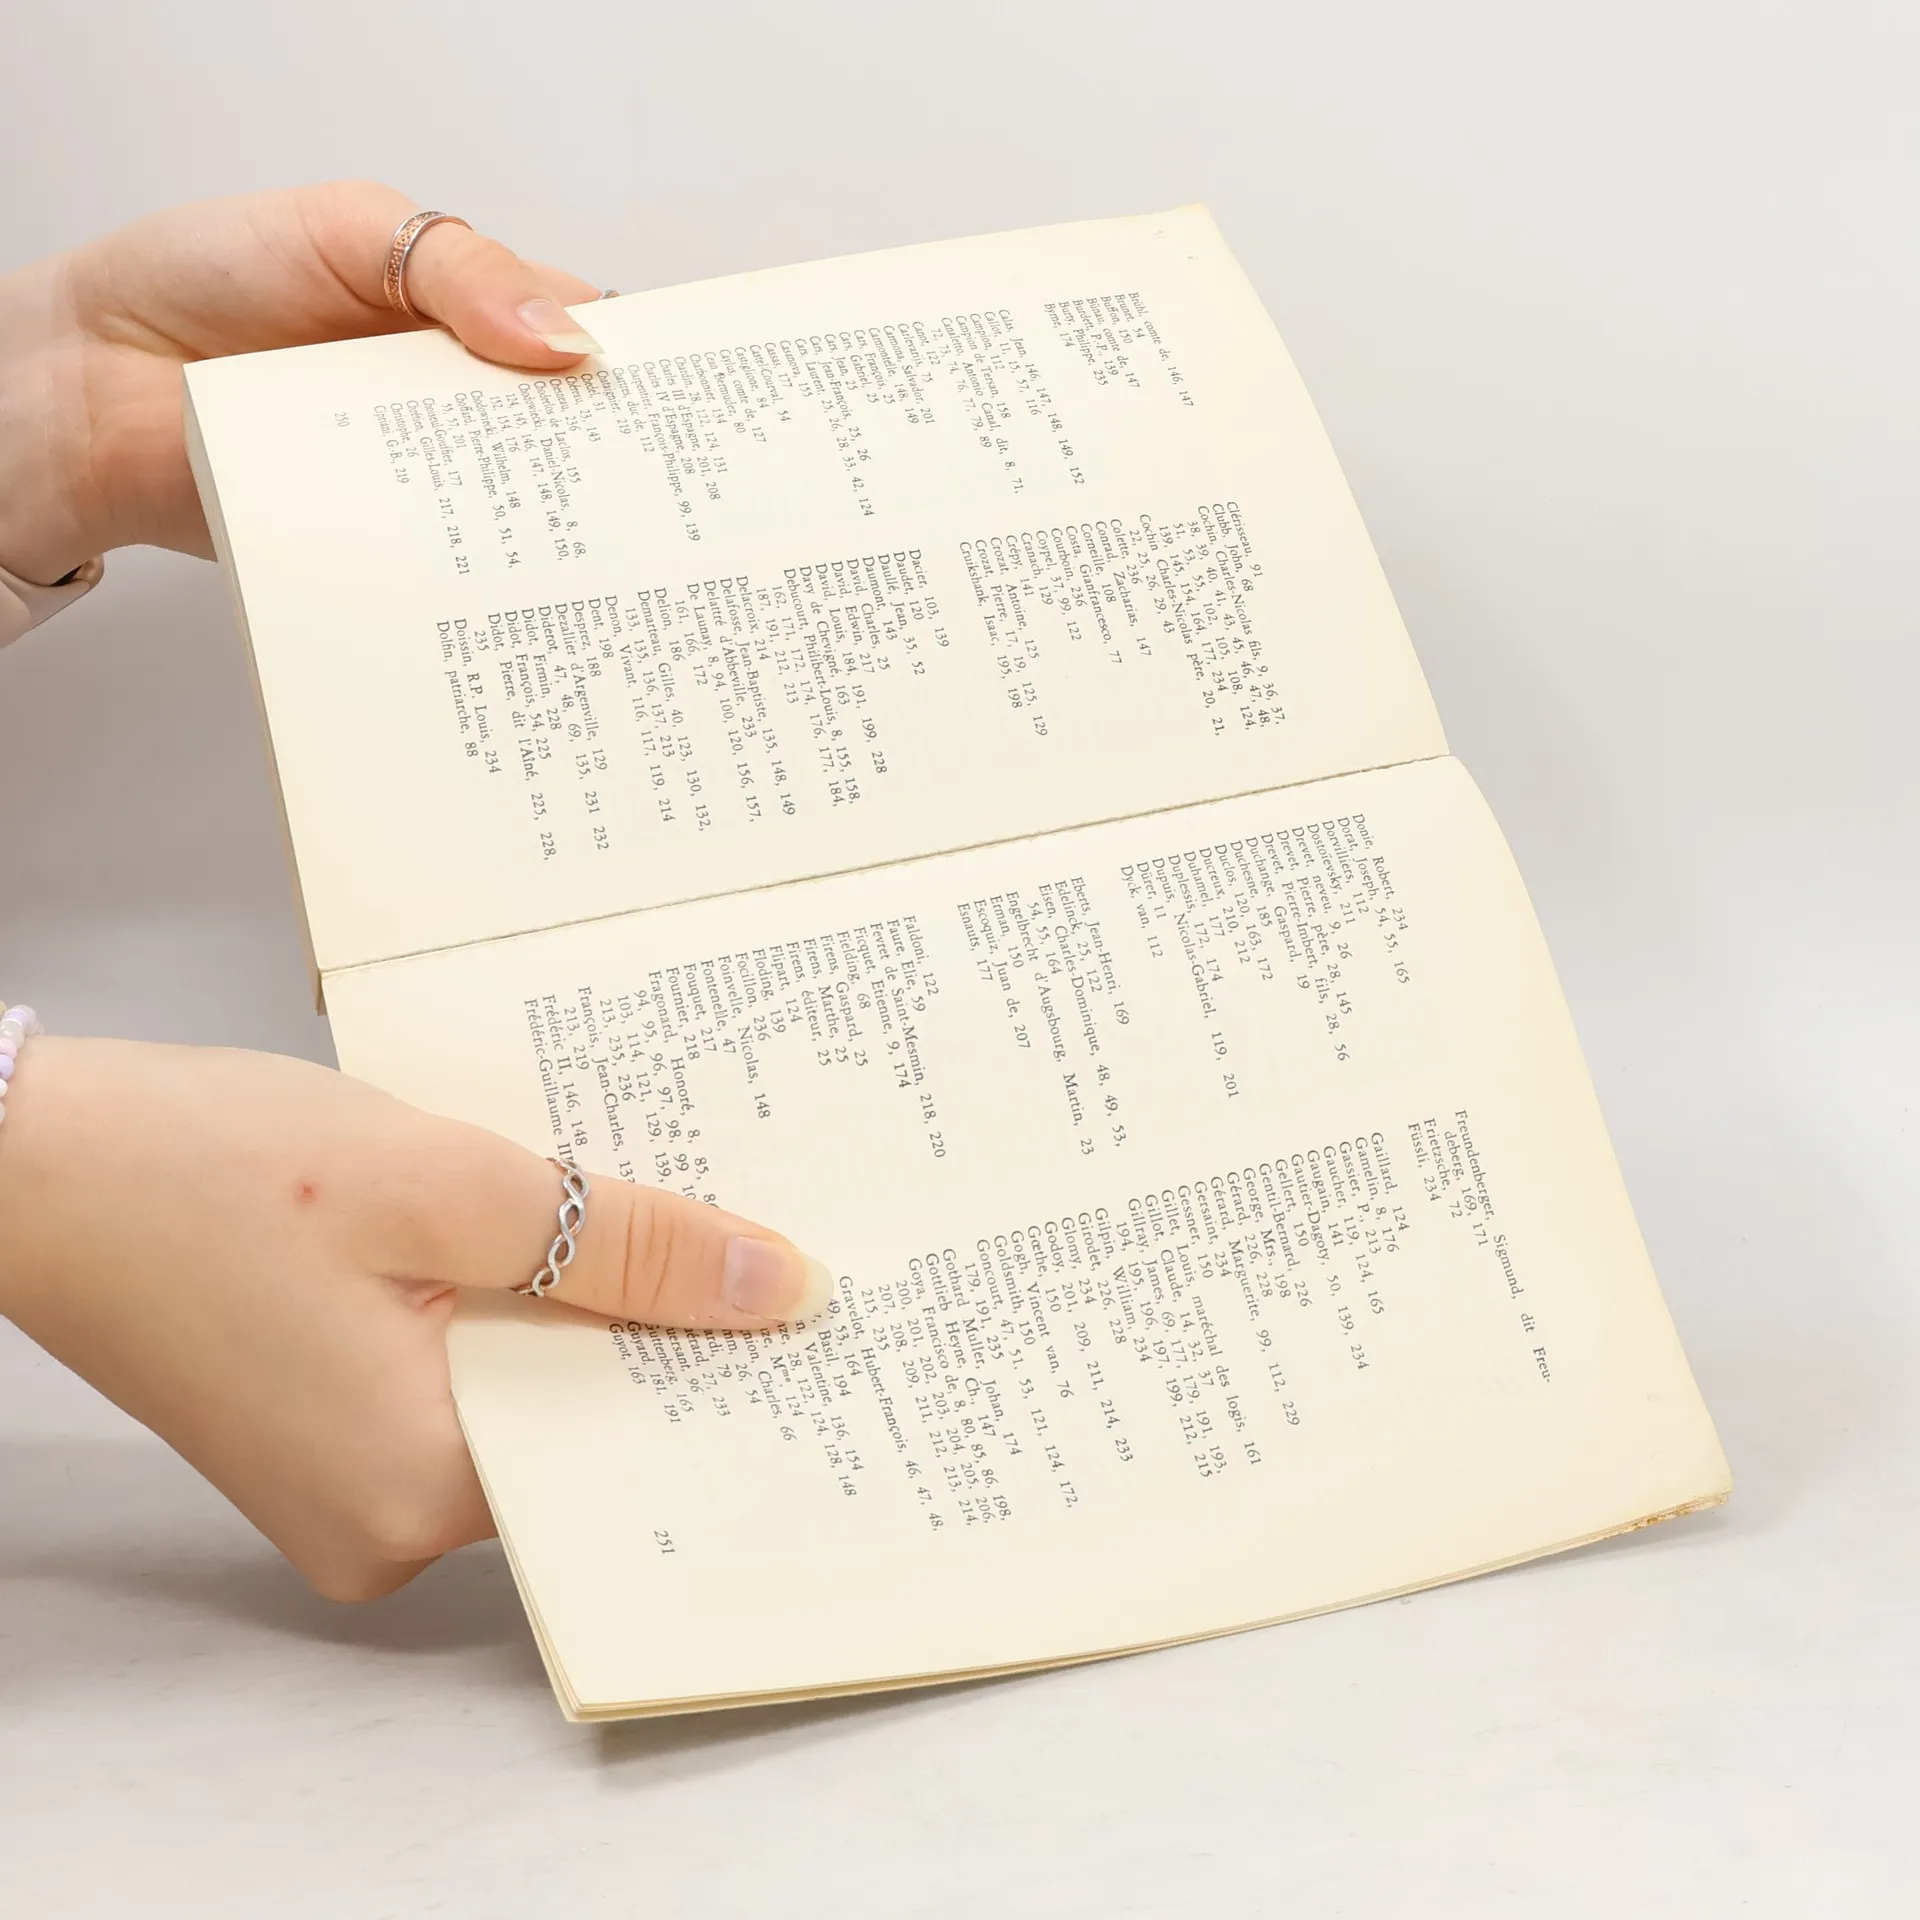 Brühl, comte de, 146, 147
Brunet, 54
Buffon, 150
Bünau, comte de, 147
Burdett, P.-P., 139
Burty, Philippe, 235
Byrne, 174
Calas, Jean, 146, 147, 148, 149, 152
Callot, 11, 15, 57, 116
Campion, 112
Campion de Tersan, 158
Canaletto, Antonio Canal, dit, 8, 71,
72, 73, 74, 76, 77, 79, 89
Canot, 122
Carlevarijs, 75
Carmona, Salvador, 201
Carmontelle, 148, 149
Cars, François, 25
Cars, Gabriel, 25
Cars, Jean, 25
Cars, Jean-François, 25, 26
Cars, Laurent, 25, 26, 28, 33, 42, 124
Casanova, 155
Cassas, 177
Castel-Courval, 54
Castiglione, 84
Caylus, comte de, 127
Cean Bermudez, 80
Charbonnier, 134
Chardin, 28, 122, 124, 131
Charles III d'Espagne, 201, 208
Charles IV d'Espagne, 208
Charpentier, François-Philippe, 99, 139
Chartres, duc de, 112
Chataignier, 219
Chedel, 31
Chéreau, 23, 143
Chesneau, 236
Choderlos de Laclos, 155
Chodowiecki, Daniel-Nicolas, 8, 68,
124, 145, 146, 147, 148, 149, 150,
152, 154, 176
Chodowiecki, Wilhelm, 148
Choffard, Pierre-Philippe, 50, 51, 54,
55, 57, 201
Choiseul-Gouffier, 177
Chrétien, Gilles-Louis, 217, 218, 221
Christophe, 26
Cipriani, G.-B., 219
Clérisseau, 91
Clubb, John, 68
Cochin, Charles-Nicolas fils, 9, 36, 37,
38, 39, 40, 41, 43, 45, 46, 47, 48,
51, 53, 55, 102, 105, 108, 124,
139, 145, 154, 164, 177, 234
Cochin, Charles-Nicolas père, 20, 21,
22, 25, 26, 29, 43
Colette, 236
Conrad, Zacharias, 147
Corneille, 108
Costa, Gianfrancesco, 77
Courboin, 236
Coypel, 37, 99, 122
Cranach, 129
Crépy, 141
Crozat, Antoine, 125
Crozat, Pierre, 17, 19, 125, 129
Cruikshank, Isaac, 195, 198
Dacier, 103, 139
Daudet, 120
Daullé, Jean, 35, 52
Daumont, 143
David, Charles, 25
David, Edwin, 217
David, Louis, 184, 191, 199, 228
Davy de Chevigné, 163
Debucourt, Philibert-Louis, 8, 155, 158,
162, 171, 172, 174, 176, 177, 184,
187, 191, 212, 213
Delacroix, 214
Delafosse, Jean-Baptiste, 135, 148, 149
Delattré d'Abbeville, 233
De Launay, 8, 94, 100, 120, 156, 157,
161, 166, 172
Delion, 186
Demarteau, Gilles, 40, 123, 130, 132,
133, 135, 136, 137, 213
Denon, Vivant, 116, 117, 119, 214
Dent, 198
Desprez, 188
Dezallier d'Argenville, 129
Diderot, 47, 48, 69, 135, 231 232
Didot, Firmin, 228
Didot, François, 54, 225
Didot, Pierre, dit l'Aîné, 225, 228,
235
Doissin, R.P. Louis, 234
Dolfin, patriarche, 88
250
Donie, Robert, 234
Dorat, Joseph, 54, 55, 165
Dorvilliers, 112
Dostoïevsky, 211
Drevet, neveu, 9, 26
Drevet, Pierre, père, 28, 145
Drevet, Pierre-Imbert, fils, 28, 56
Duchange, Gaspard, 19
Duchesne, 185
Duclos, 120, 163, 172
Ducreux, 210, 212
Duhamel, 177
Duplessis, 172, 174
Dupuis, Nicolas-Gabriel, 119, 201
Dürer, 11
Dyck, van, 112
Eberts, Jean-Henri, 169
Edelinck, 25, 122
Eisen, Charles-Dominique, 48, 49, 53,
54, 55, 164
Engelbrecht d'Augsbourg, Martin, 23
Erman, 150
Escoquiz, Juan de, 207
Esnauts, 177
Faldoni, 122
Faure, Elie, 59
Fevret de Saint-Mesmin, 218, 220
Ficquet, Etienne, 9, 174
Fielding, 68
Firens, Gaspard, 25
Firens, Marthe, 25
Firens, éditeur, 25
Flipart, 124
Floding, 139
Focillon, 236
Foinvelle, Nicolas, 148
Fontenelle, 47
Fouquet, 217
Fournier, 218
Fragonard, Honoré, 8, 85,
94, 95, 96, 97, 98, 99
103, 114, 121, 129, 139,
213, 235, 236
François, Jean-Charles,
213, 219
Frédéric II, 146, 148
Frédéric-Guillaume
Freundenberger, Sigmund, dit Freu-
deberg, 169, 171
Frietzsche, 72
Füssli, 234
Gaillard, 124
Gamelin, 8, 176
Gassier, P., 213
Gaucher, 119, 124, 165
Gaugain, 141
Gautier-Dagoty, 50, 139, 234
Gellert, 150
Gentil-Bernard, 226
George, Mrs., 198
Gérard, 226, 228
Gérard, Marguerite, 99, 112, 229
Gersaint, 234
Gessner, 150
Gillet, Louis, maréchal des logis, 161
Gillot, Claude, 14, 32, 37
Gillray, James, 69, 177, 179, 191, 193,
194, 195, 196, 197, 199, 212, 215
Gilpin, William, 234
Girodet, 226, 228
Glomy, 234
Godoy, 201, 209, 211, 214, 233
Gœthe, 150
Gogh, Vincent van, 76
Goldsmith, 150
Goncourt, 47, 51, 53, 121, 124, 172,
179, 191, 235
Gothard Muller, Johan, 174
Gottlieb Heyne, Ch., 147
Goya, Francisco de, 8, 80, 85, 86, 198,
200, 201, 202, 203, 204, 205, 206,
207, 208, 209, 211, 212, 213, 214,
215, 235
Gravelot, Hubert-François, 46, 47, 48,
49, 53, 164
Basil, 194
Valentine, 136, 154
28, 122, 124, 128, 148
Mme, 124
Charles, 66
26, 54
79
27, 233
96
165
181, 191
Guyot, 163
251